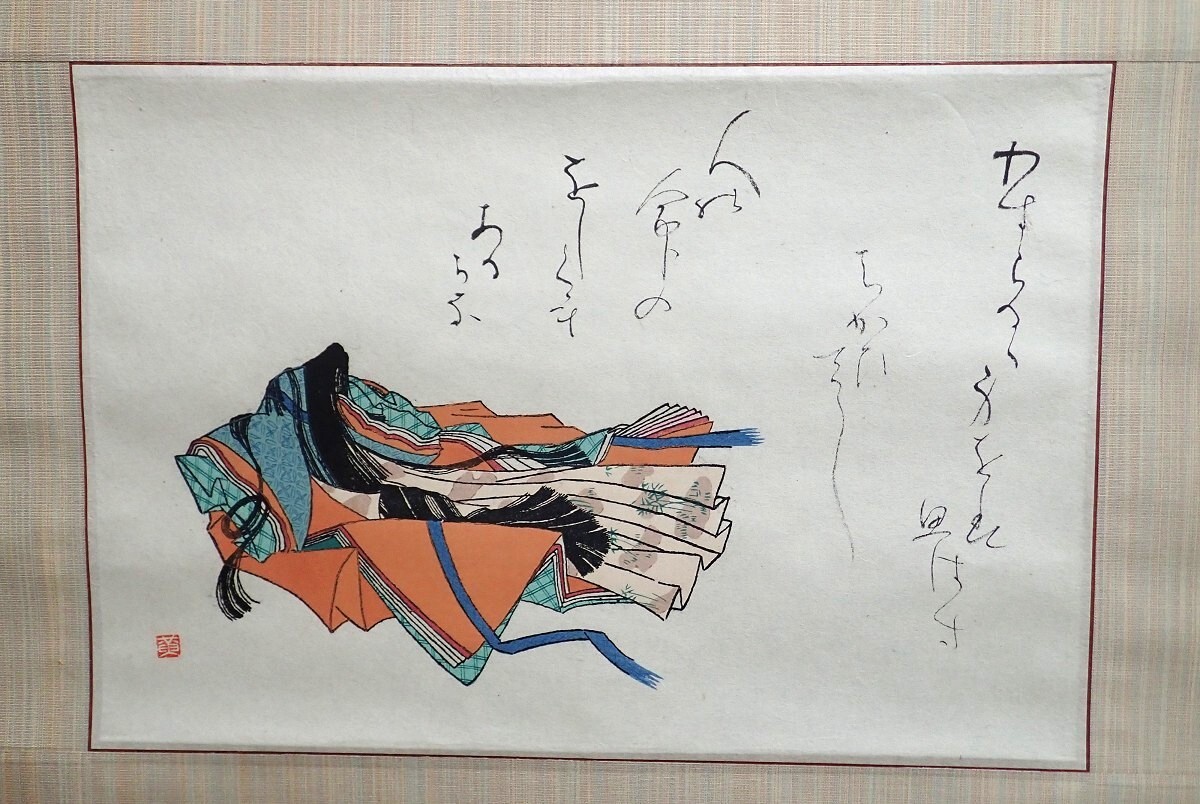 わすらるゝ身をは
思はす
ちかひ
てし
人の
命の
をしくも
ある
かな